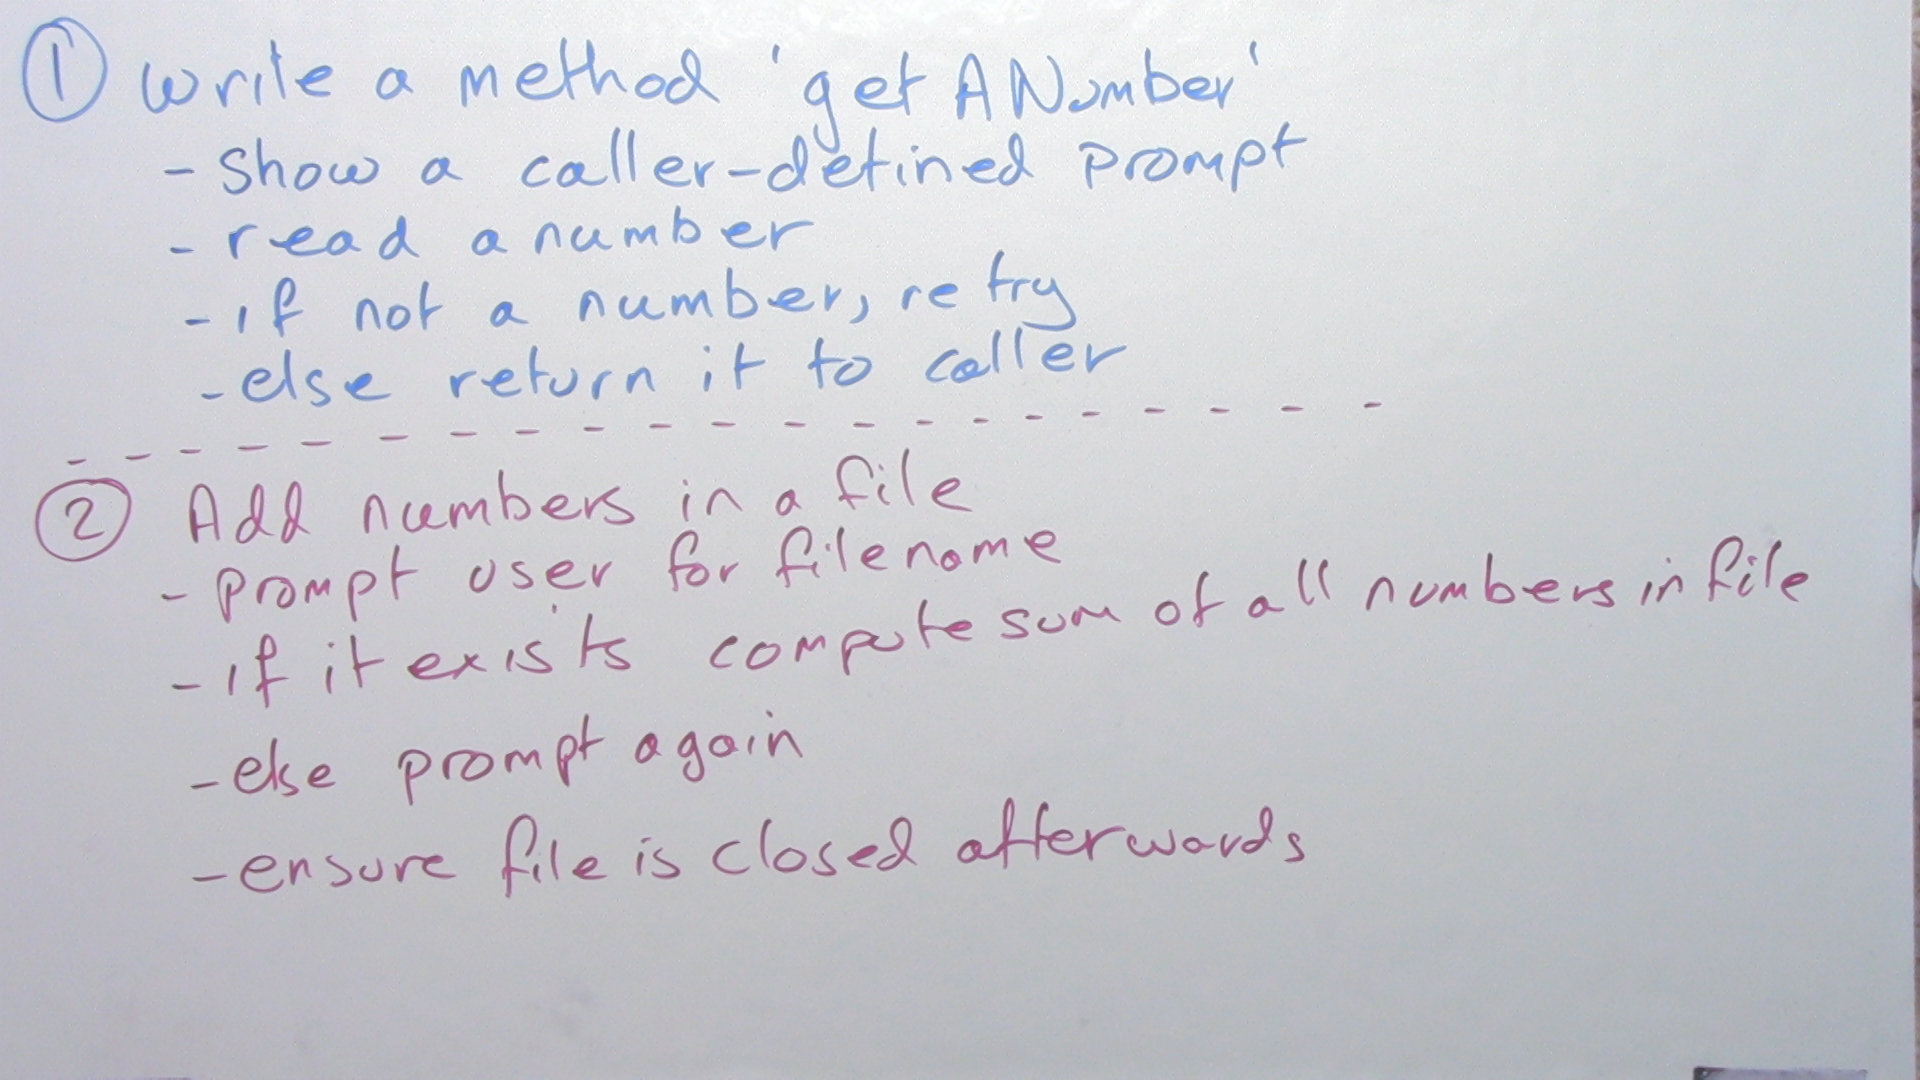 ① Write a method 'getANumber'
- Show a caller-defined prompt
- read a number
- if not a number, retry
- else return it to caller
② Add numbers in a file
- prompt user for filename
- if it exists compute sum of all numbers in file
- else prompt again
- ensure file is closed afterwards